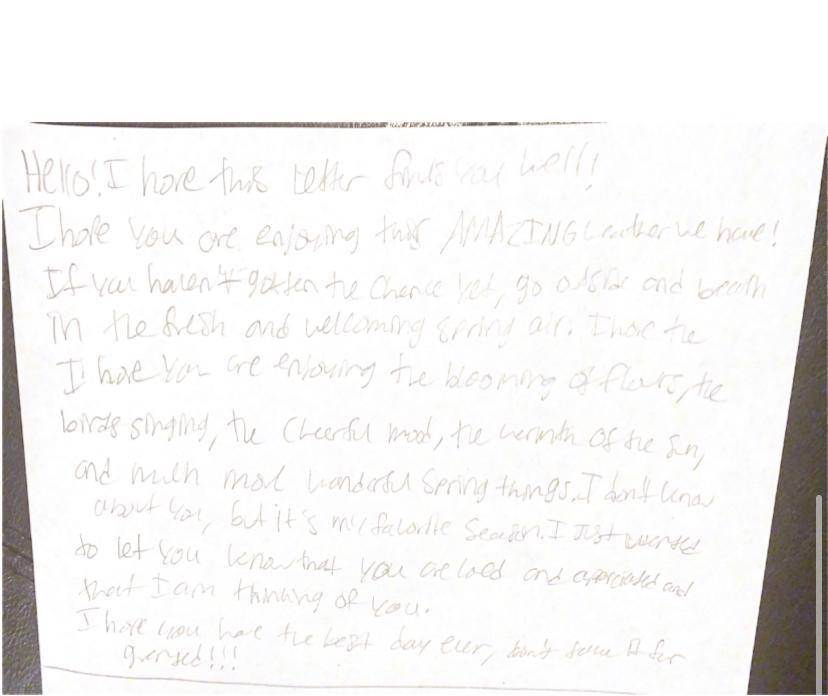 Hello! I hope this letter finds you well!
I hope you are enjoying this AMAZING weather we have!
If you haven't gotten the chance yet, go outside and breath
in the fresh and wellcoming spring air. I hope the
I hope you are enjoying the blooming of flowers, the
birds singing, the cheerful mood, the warmth of the sun,
and much more wonderful spring things. I don't know
about you, but it's my favorite season. I just wanted
to let you know that you are loved and appreciated and
that I am thinking of you.
I hope you have the best day ever, don't take it for
granted!!!